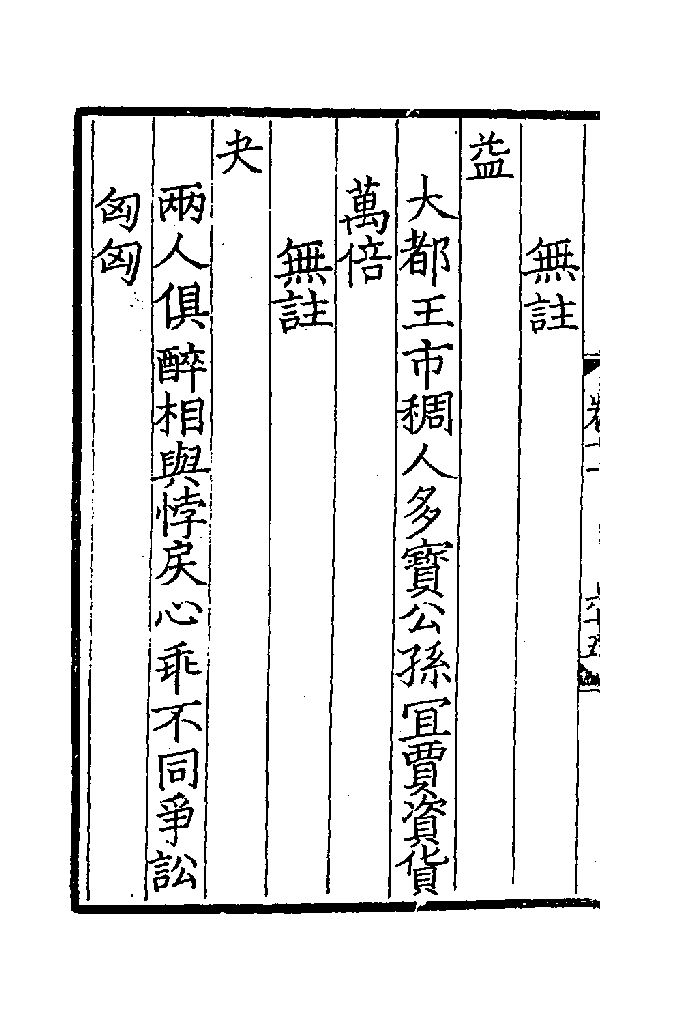 無註
益
大都王市稠人多寶公孫冝賈資貨
萬倍
無註
夬
兩人俱醉相與悖戾心乖不同爭訟
匈匈